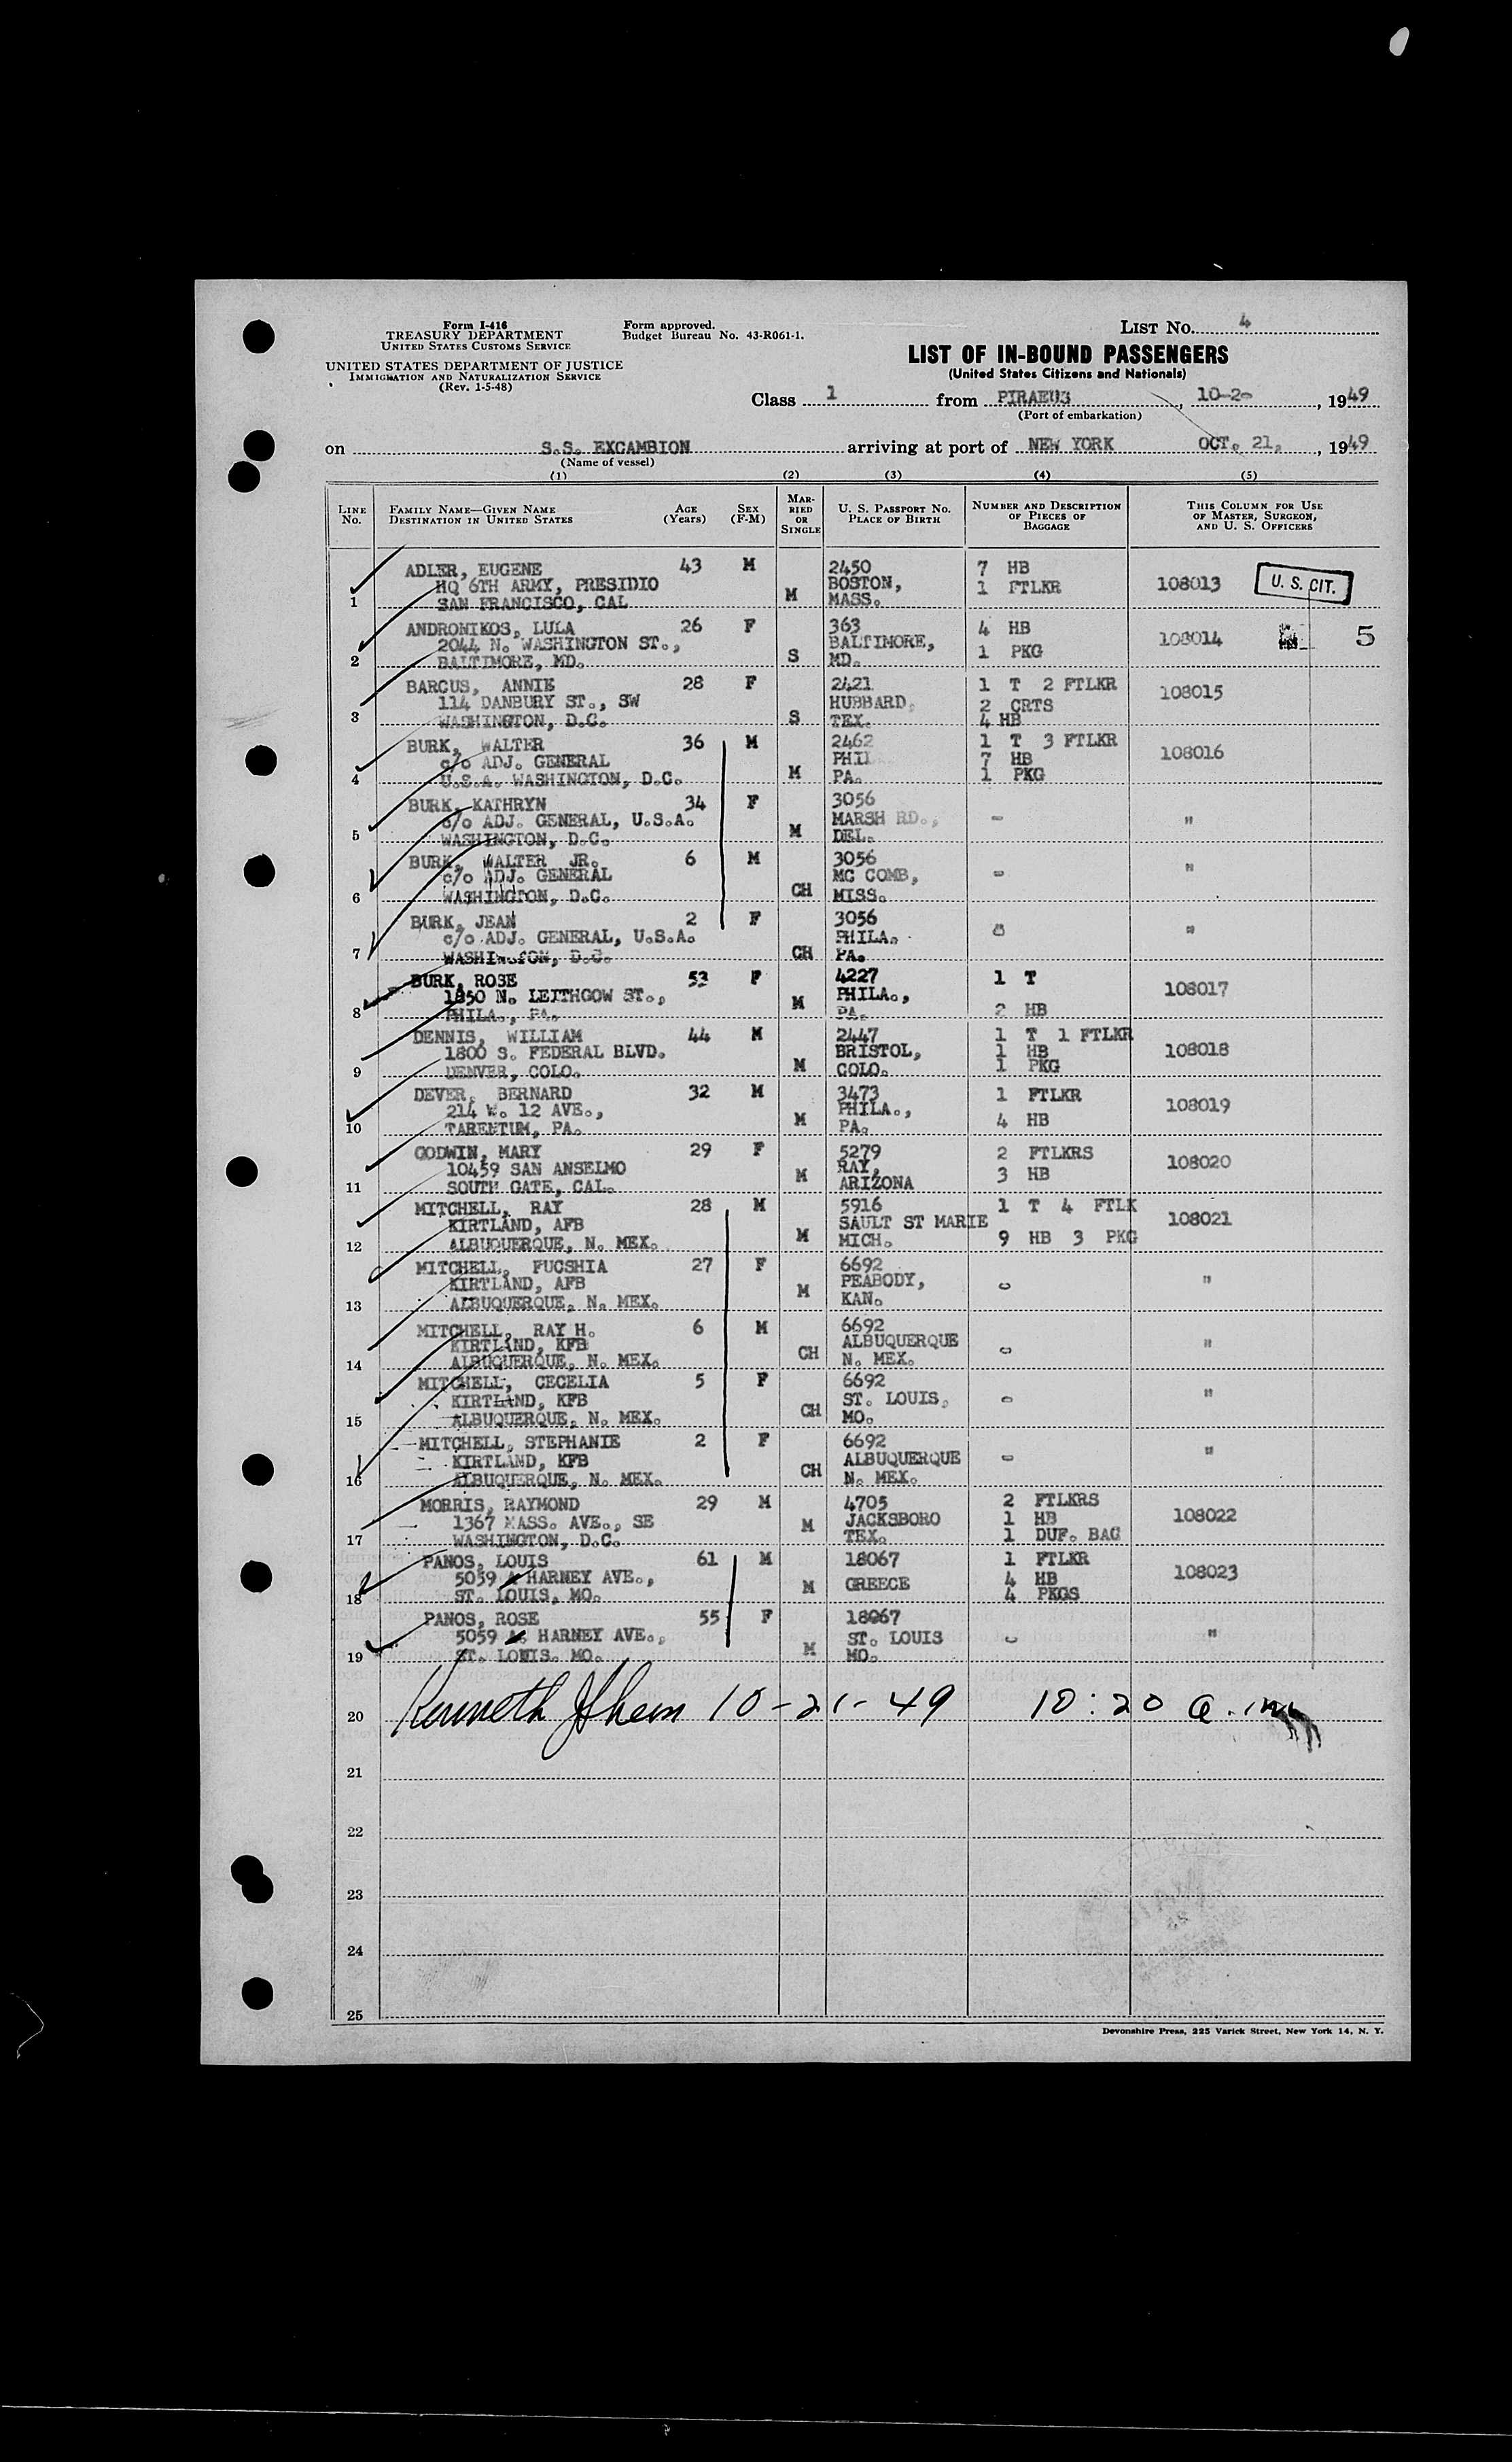 Form I-416
TREASURY DEPARTMENT
UNITED STATES CUSTOMS SERVICE
UNITED STATES DEPARTMENT OF JUSTICE
IMMIGRATION AND NATURALIZATION SERVICE
(Rev. 1-5-48)
Form approved.
Budget Bureau No. 43-R061-1.
LIST No. 4
LIST OF IN-BOUND PASSENGERS
(United States Citizens and Nationals)
Class 1 from PIRAEUS, 10-2-, 1949
(Port of embarkation)
on S.S. EXCAMBION arriving at port of NEW YORK OCT. 21, , 1949
(Name of vessel)
(1) (2) (3) (4) (5)
LINE No. FAMILY NAME—GIVEN NAME DESTINATION IN UNITED STATES AGE (Years) SEX (F-M) MARRIED OR SINGLE U. S. PASSPORT No. PLACE OF BIRTH NUMBER AND DESCRIPTION OF PIECES OF BAGGAGE THIS COLUMN FOR USE OF MASTER, SURGEON, AND U. S. OFFICERS
ADLER, EUGENE 43 M 2450 7 HB
HQ 6TH ARMY, PRESIDIO BOSTON, 1 FTLKR 108013 U. S. CIT.
1 SAN FRANCISCO, CAL M MASS.
ANDRONIKOS, LULA 26 F 363 4 HB
2044 N. WASHINGTON ST., BALTIMORE, 1 PKG 108014 5
2 BALTIMORE, MD. S MD.
BARCUS, ANNIE 28 F 2421 1 T 2 FTLKR
114 DANBURY ST., SW HUBBARD, 2 CRTS 108015
3 WASHINGTON, D.C. S TEX. 4 HB
BURK, WALTER 36 M 2462 1 T 3 FTLKR
c/o ADJ. GENERAL PHIL 7 HB 108016
4 U.S.A. WASHINGTON, D.C. M PA. 1 PKG
BURK, KATHRYN 34 F 3056
c/o ADJ. GENERAL, U.S.A. MARSH RD., - "
5 WASHINGTON, D.C. M DEL.
BURK, WALTER JR. 6 M 3056
c/o ADJ. GENERAL MC COMB, - "
6 WASHINGTON, D.C. CH MISS.
BURK, JEAN 2 F 3056
c/o ADJ. GENERAL, U.S.A. PHILA. "
7 WASHINGTON, D.C. CH PA.
BURK, ROSE 53 F 4227 1 T
1850 N. LEITHGOW ST., PHILA., 108017
8 PHILA., PA. M PA. 2 HB
DENNIS, WILLIAM 44 M 2447 1 T 1 FTLKR
1800 S. FEDERAL BLVD. BRISTOL, 1 HB 108018
9 DENVER, COLO. M COLO. 1 PKG
DEVER, BERNARD 32 M 3473 1 FTLKR
214 W. 12 AVE., PHILA., 108019
10 TARENTUM, PA. M PA. 4 HB
GODWIN, MARY 29 F 5279 2 FTLKRS
10459 SAN ANSELMO RAY, 3 HB 108020
11 SOUTH GATE, CAL. M ARIZONA
MITCHELL, RAY 28 M 5916 1 T 4 FTLK
KIRTLAND, AFB SAULT ST MARIE 108021
12 ALBUQUERQUE, N. MEX. M MICH. 9 HB 3 PKG
MITCHELL, FUCSHIA 27 F 6692
KIRTLAND, AFB PEABODY, - "
13 ALBUQUERQUE, N. MEX. M KAN.
MITCHELL, RAY H. 6 M 6692
KIRTLAND, KFB ALBUQUERQUE - "
14 ALBUQUERQUE, N. MEX. CH N. MEX.
MITCHELL, CECELIA 5 F 6692
KIRTLAND, KFB ST. LOUIS, - "
15 ALBUQUERQUE, N. MEX. CH MO.
MITCHELL, STEPHANIE 2 F 6692
KIRTLAND, KFB ALBUQUERQUE - "
16 ALBUQUERQUE, N. MEX. CH N. MEX.
MORRIS, RAYMOND 29 M 4705 2 FTLKRS
1367 MASS. AVE., SE JACKSBORO 1 HB 108022
17 WASHINGTON, D.C. M TEX. 1 DUF. BAG
PANOS, LOUIS 61 M 18067 1 FTLKR
5059 A HARNEY AVE., GREECE 4 HB 108023
18 ST. LOUIS, MO. M 4 PKGS
PANOS, ROSE 55 F 18067
5059 A. HARNEY AVE., ST. LOUIS - "
19 ST. LOUIS. MO. M MO.
20 Kenneth 10-21-49 10:20 a.m.
21
22
23
24
25
Devonshire Press, 225 Varick Street, New York 14, N. Y.